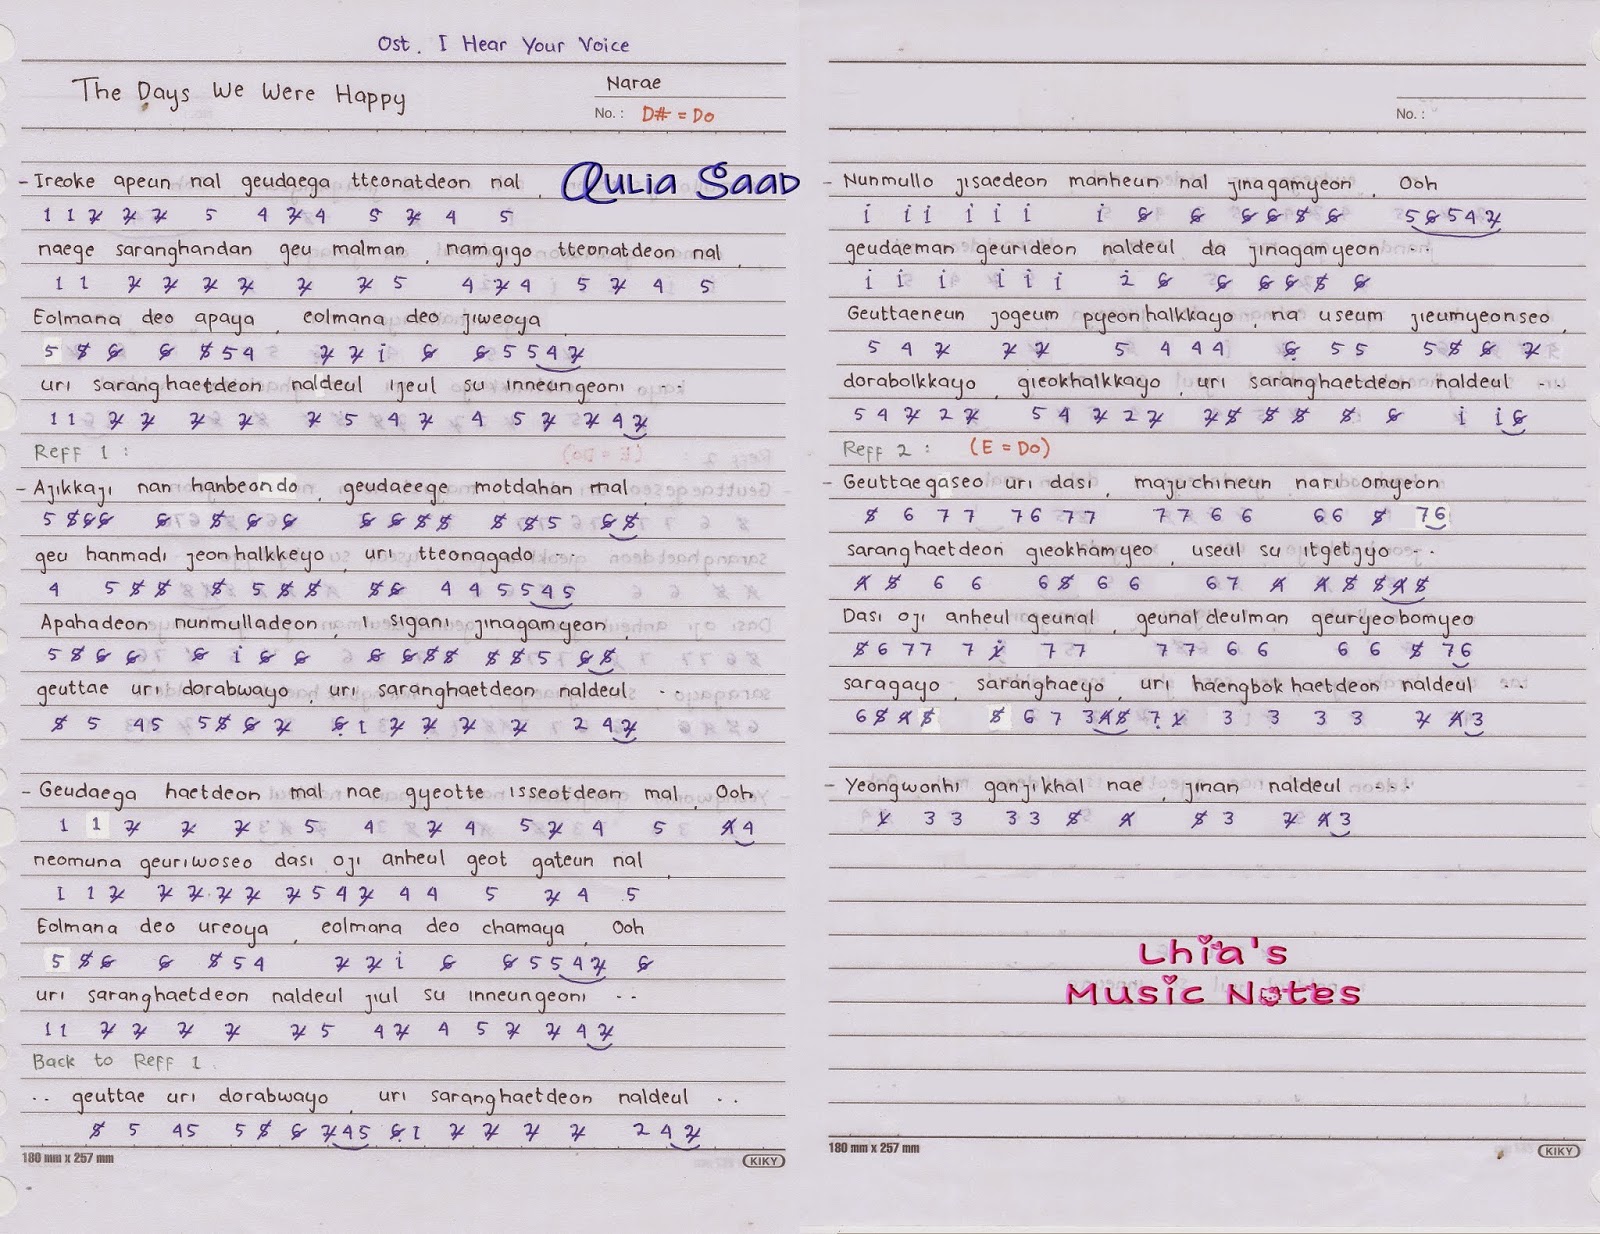 Ost. I Hear Your Voice
The Days We Were Happy
Narae
No. : D# = Do
Aulia Saad
- Ireoke apeun nal geudaega tteonatdeon nal ,
1 1 2̸ 2̸ 2̸ 5 4 2̸ 4 5 2̸ 4 5
naege saranghandan geu malman , namgigo tteonatdeon nal ,
1 1 2̸ 2̸ 2̸ 2̸ 2̸ 2̸ 5 4 2̸ 4 5 2̸ 4 5
Eolmana deo apaya , eolmana deo jiweoya ,
5 5̸ 6̸ 6̸ 5̸ 5 4 2̸ 2̸ i 6̸ 6̸ 5 5 4 2̸
uri saranghaetdeon naldeul ijeul su inneungeoni ...
1 1 2̸ 2̸ 2̸ 2̸ 2̸ 5 4 2̸ 4 5 2̸ 2̸ 4 2̸
Reff 1 :
- Ajikkaji nan hanbeondo , geudaeege motdahan mal
5 5̸ 6̸ 6̸ 6̸ 5̸ 6̸ 6̸ 6̸ 6̸ 5̸ 5̸ 5̸ 5̸ 5 6̸ 5̸
geu hanmadi jeonhalkkeyo , uri tteonagado ...
4 5 5̸ 5̸ 5̸ 5 5̸ 5̸ 5̸ 6̸ 4 4 5 5 4 5
Apahadeon nunmulladeon , i sigani jinagamyeon ,
5 5̸ 6̸ 6̸ 6̸ i 6̸ 6̸ 6̸ 6̸ 5̸ 5̸ 5̸ 5̸ 5 6̸ 5̸
geuttae uri dorabwayo , uri saranghaetdeon naldeul ...
5̸ 5 4 5 5 5̸ 6̸ 2̸ 6̸ 1 2̸ 2̸ 2̸ 2̸ 2 4 2̸
- Geudaega haetdeon mal nae gyeotte isseotdeon mal , Ooh
1 1 2̸ 2̸ 2̸ 5 4 2̸ 4 5 2̸ 4 5 4̸ 4
neomuna geuriwoseo dasi oji anheul geot gateun nal ,
1 1 2̸ 2̸ 2̸ 2̸ 2̸ 2̸ 5 4 2̸ 4 4 5 2̸ 4 5
Eolmana deo ureoya , eolmana deo chamaya , Ooh
5 5̸ 6̸ 6̸ 5̸ 5 4 2̸ 2̸ i 6̸ 6̸ 5 5 4 2̸ 6̸
uri saranghaetdeon naldeul jiul su inneungeoni ...
1 1 2̸ 2̸ 2̸ 2̸ 2̸ 5 4 2̸ 4 5 2̸ 2̸ 4 2̸
Back to Reff 1 .
.. geuttae uri dorabwayo , uri saranghaetdeon naldeul ..
5̸ 5 4 5 5 5̸ 6̸ 2̸ 4 5 6̸ 1 2̸ 2̸ 2̸ 2̸ 2 4 2̸
180 mm x 257 mm
KIKY
No. :
- Nunmullo jisaedeon manheun nal jinagamyeon , Ooh
i i i i i i i 6̸ 6̸ 6̸ 6̸ 5̸ 6̸ 5 6̸ 5 4 2̸
geudaeman geurideon naldeul da jinagamyeon ...
i i i i i i 2 6̸ 6̸ 6̸ 6̸ 5̸ 6̸
Geuttaeneun jogeum pyeonhalkkayo , na useum jieumyeonseo ,
5 4 2̸ 2̸ 2̸ 5 4 4 4 6̸ 5 5 5 5̸ 6̸ 2̸
dorabolkkayo , gieokhalkkayo , uri saranghaetdeon naldeul ..
5 4 2̸ 2 2̸ 5 4 2̸ 2 2̸ 2̸ 5̸ 5̸ 5̸ 5̸ 6̸ i i 6̸
Reff 2 : (E = Do)
- Geuttaegaseo uri dasi , majuchineun nari omyeon
5̸ 6 7 7 7 6 7 7 7 7 6 6 6 6 5̸ 7 6
saranghaetdeon gieokhamyeo , useul su itgetjyo ...
4̸ 5̸ 6 6 6 5̸ 6 6 6 7 4̸ 4̸ 5̸ 5̸ 4̸ 5̸
Dasi oji anheul geunal , geunaldeulman geuryeobomyeo
5̸ 6 7 7 7 1̸ 7 7 7 7 6 6 6 6 5̸ 7 6
saragayo , saranghaeyo , uri haengbokhaetdeon naldeul ...
6 5̸ 4̸ 5̸ 5̸ 6 7 3 4̸ 5̸ 7 1̸ 3 3 3 3 2̸ 4̸ 3
- Yeongwonhi ganjikhal nae , jinan naldeul ...
1̸ 3 3 3 3 5̸ 4̸ 5̸ 3 2̸ 4̸ 3
Lhia's
Music Notes
180 mm x 257 mm
KIKY